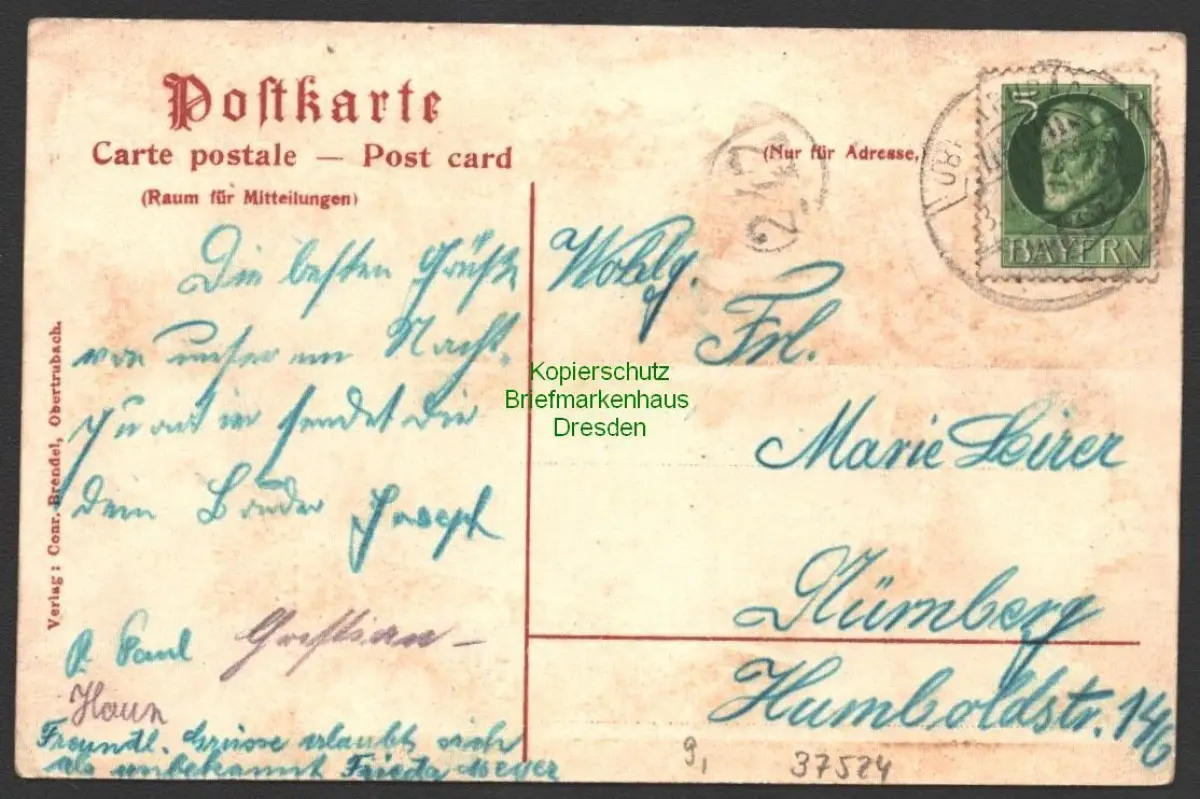 Postkarte
Carte postale — Post card
(Raum für Mitteilungen)
(Nur für Adresse,
5 P
BAYERN
Die besten Grüße
von unserem Nacht-
quartier sendet Dir
dein Bruder Joseph
P. Paul
Haun
Freundl. Grüsse erlaubt sich
als unbekannt Frieda Meyer
Verlag: Conr. Brendel, Obertrubach.
Wohlg.
Frl.
Marie Leirer
Nürnberg
Humboldstr. 146
Kopierschutz
Briefmarkenhaus
Dresden
9,
37524